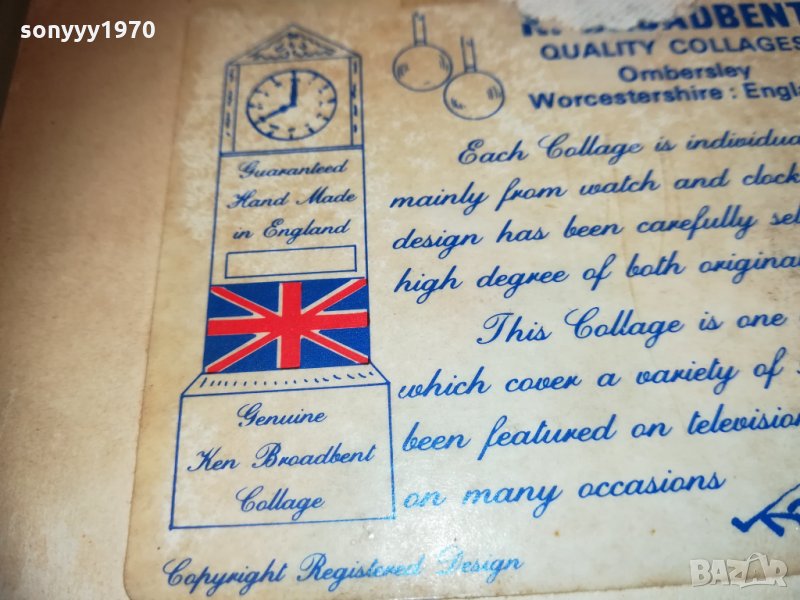 sonyyy1970
BROADBENT
QUALITY COLLAGES
Ombersley
Worcestershire : Engla
Each Collage is individua
mainly from watch and clock
design has been carefully sel
high degree of both origina
This Collage is one
which cover a variety of
been featured on television
on many occasions
Guaranteed
Hand Made
in England
Genuine
Ken Broadbent
Collage
Copyright Registered Design
BAZAR